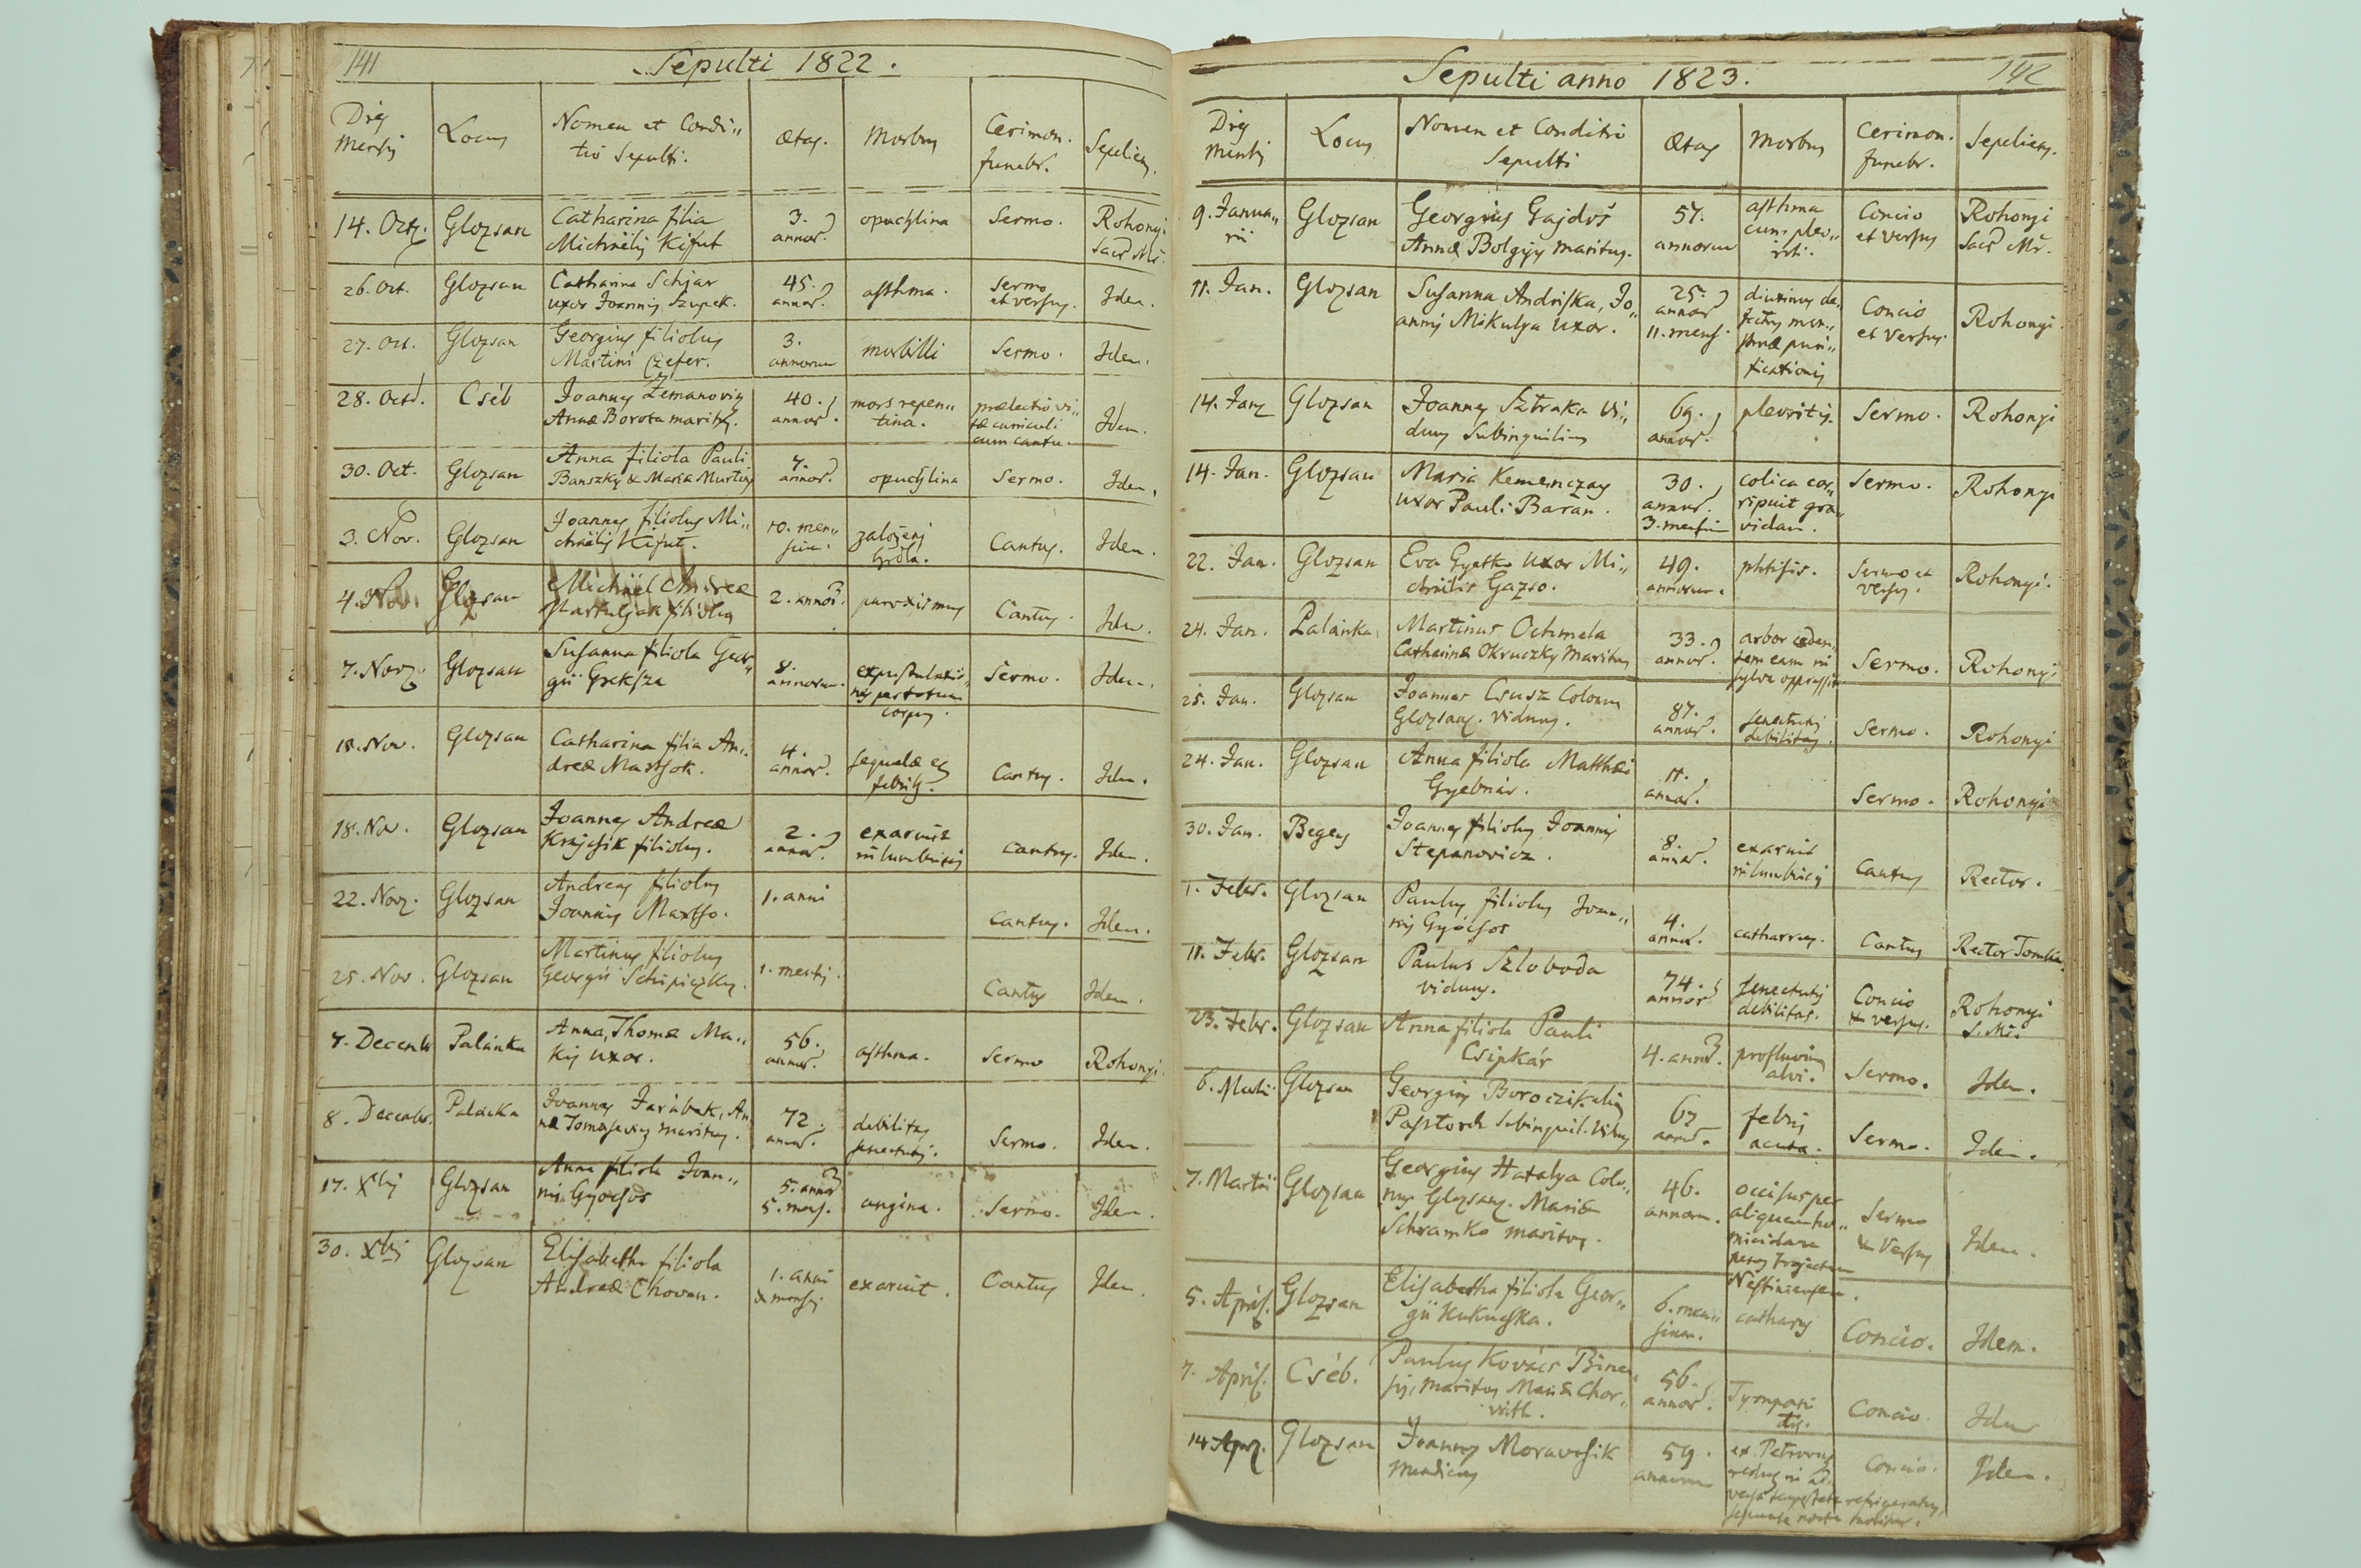 141
Sepulti 1822.
Dies Mensis | Locus | Nomen et Condi„ tio Sepulti. | Ætas. | Morbus | Cerimon. funebr. | Sepeliens.
14. Octr. | Glozsan | Catharina filia | 3. | opuchlina | Sermo. | Rohonyi
Michaëlis Kifut | annor. | Sacr. Mr.
26. Oct. | Glozsan | Catharina Schjar | 45. | asthma. | Sermo | Idem.
uxor Joannis Szupek. | annor. | et versus.
27. Oct. | Glozsan | Georgius filiolus | 3. | morbilli | Sermo. | Idem.
Martini Czefer. | annorum
28. Octr. | Cséb | Joannes Zemanovics | 40. | mors repen„ | prælectio vi„ | Idem.
Annæ Borota maritus. | annor. | tina. | tæ curriculi
cum cantu.
30. Oct. | Glozsan | Anna filiola Pauli | 7. | opuchlina | Sermo. | Idem.
Banszky & Mariæ | annor.
3. Nov. | Glozsan | Joannes filiolus Mi„ | 10. men„ | založenj | Cantus. | Idem.
chaëlis Kifut. | sium. | hrdla.
4. Nov. | Glozsan | Michaël Andreæ | 2. annor. | paroxismus | Cantus. | Idem.
filiolus
7. Novr. | Glozsan | Susanna filiola Geor„ | 8. | Sermo. | Idem.
gii Greksza | annorum. | per totum
corpus.
18. Nov. | Glozsan | Catharina filia An„ | 4. | sequelæ ex | Cantus. | Idem.
dreæ | annor. | febris.
18. Nov. | Glozsan | Joannes Andreæ | 2. | exaruit | Cantus. | Idem.
Krajcsik filiolus. | annor. | in lumbricis
22. Novr. | Glozsan | Andreas filiolus | 1. anni | Cantus. | Idem.
Joannis
25. Nov. | Glozsan | Martinus filiolus | 1. mensis. | Cantus | Idem.
Georgii Schipiczky.
7. Decemb | Palánka | Anna, Thomæ Ma„ | 56. | asthma. | Sermo | Rohonyi.
kis uxor. | annor.
8. Decembr. | Palánka | Joannes Jarábek, An„ | 72. | debilitas | Sermo. | Idem.
næ Tomasevics maritus. | annor. | senectutis.
17. Xbris | Glozsan | Anna filiola Joan„ | 5. annor | angina. | Sermo. | Idem.
nis Gyócsos | 5. mens.
30. Xbris | Glozsan | Elisabetha filiola | 1. anni | exaruit. | Cantus | Idem.
Andreæ Chovan. | & mensis
142
Sepulti anno 1823.
Dies Mensis | Locus | Nomen et Conditio Sepulti | Ætas | Morbus | Cerimon. funebr. | Sepeliens.
9. Janua„ | Glozsan | Georgius Gajdoš | 57. | asthma | Concio | Rohonyi
rii | Annæ Bolgyy maritus. | annorum | cum pleu„ | et versus | Sacr Mr.
riti.
11. Jan. | Glozsan | Susanna Andriska, Jo„ | 25. | diutinus de„ | Concio | Rohonyi
annis Mikulya uxor. | annor | fectus men„ | et versus.
11. mens. | struæ puri„
ficationis
14. Janr | Glozsan | Joannes Sztraka vi„ | 69. | pleuritis. | Sermo. | Rohonyi
duus Subinquilinus | annor.
14. Jan. | Glozsan | Maria Kemenczay | 30. | colica cor„ | Sermo. | Rohonyi
uxor Pauli Baran. | annor. | ripuit gra„
3. mensium | vidam.
22. Jan. | Glozsan | Eva uxor Mi„ | 49. | phtisis. | Sermo et | Rohonyi.
chaëlis Gazso. | annorum. | versus.
24. Jan. | Palánka | Martinus Ochmela | 33. | arbor cæden„ | Sermo. | Rohonyi
Catharinæ Okruczky maritus | annor. | tem eam in
sylva oppressit
25. Jan. | Glozsan | Joannes Csusz Colonus | 87. | senectutis | Sermo. | Rohonyi
Glozsans. viduus. | annor. | debilitas.
24. Jan. | Glozsan | Anna filiola Matthæi | 11. | Sermo. | Rohonyi
Gyebnár. | annor.
30. Jan. | Begecs | Joannes filiolus Joannis | 8. | exaruit | Cantus | Rector.
Stepanovicz. | annor. | in lumbricis
1. Febr. | Glozsan | Paulus filiolus Joan„ | 4. | catharrus. | Cantus | Rector Tomka.
nis Gyócsos | annor.
11. Febr. | Glozsan | Paulus Szloboda | 74. | senectutis | Concio | Rohonyi
viduus. | annor | debilitas. | & versus. | S. Mr.
23. Febr. | Glozsan | Anna filiola Pauli | 4. annor. | profluvium | Sermo. | Idem.
Csipkár | alvi.
6. Martii | Glozsan | Georgius | 67 | febris | Sermo. | Idem.
Pastorek Subinquil. | annor. | acuta.
7. Martii | Glozsan | Georgius Hatalya Colo„ | 46. | occisus per | Sermo | Idem.
nus Glozsans. Mariæ | annorum. | aliquem ho„ | & Versus
Schramko maritus. | micidam
penes trajectum
Nestinensem.
5. April. | Glozsan | Elisabetha filiola Geor„ | 6. men„ | catharrus | Concio. | Idem.
gii Kukucska. | sium.
7. April. | Cséb. | Paulus Kovács | 56. | Tympani | Concio | Idem
maritus Mariæ Chor„ | annor. | tis.
váth.
14 Apr. | Glozsan | Joannes Moravcsik | 59. | ex Petrovar | Concio. | Idem.
mendicus | annorum | redux in ad„
versa tempestate refrigeratus,
nocte moritur.